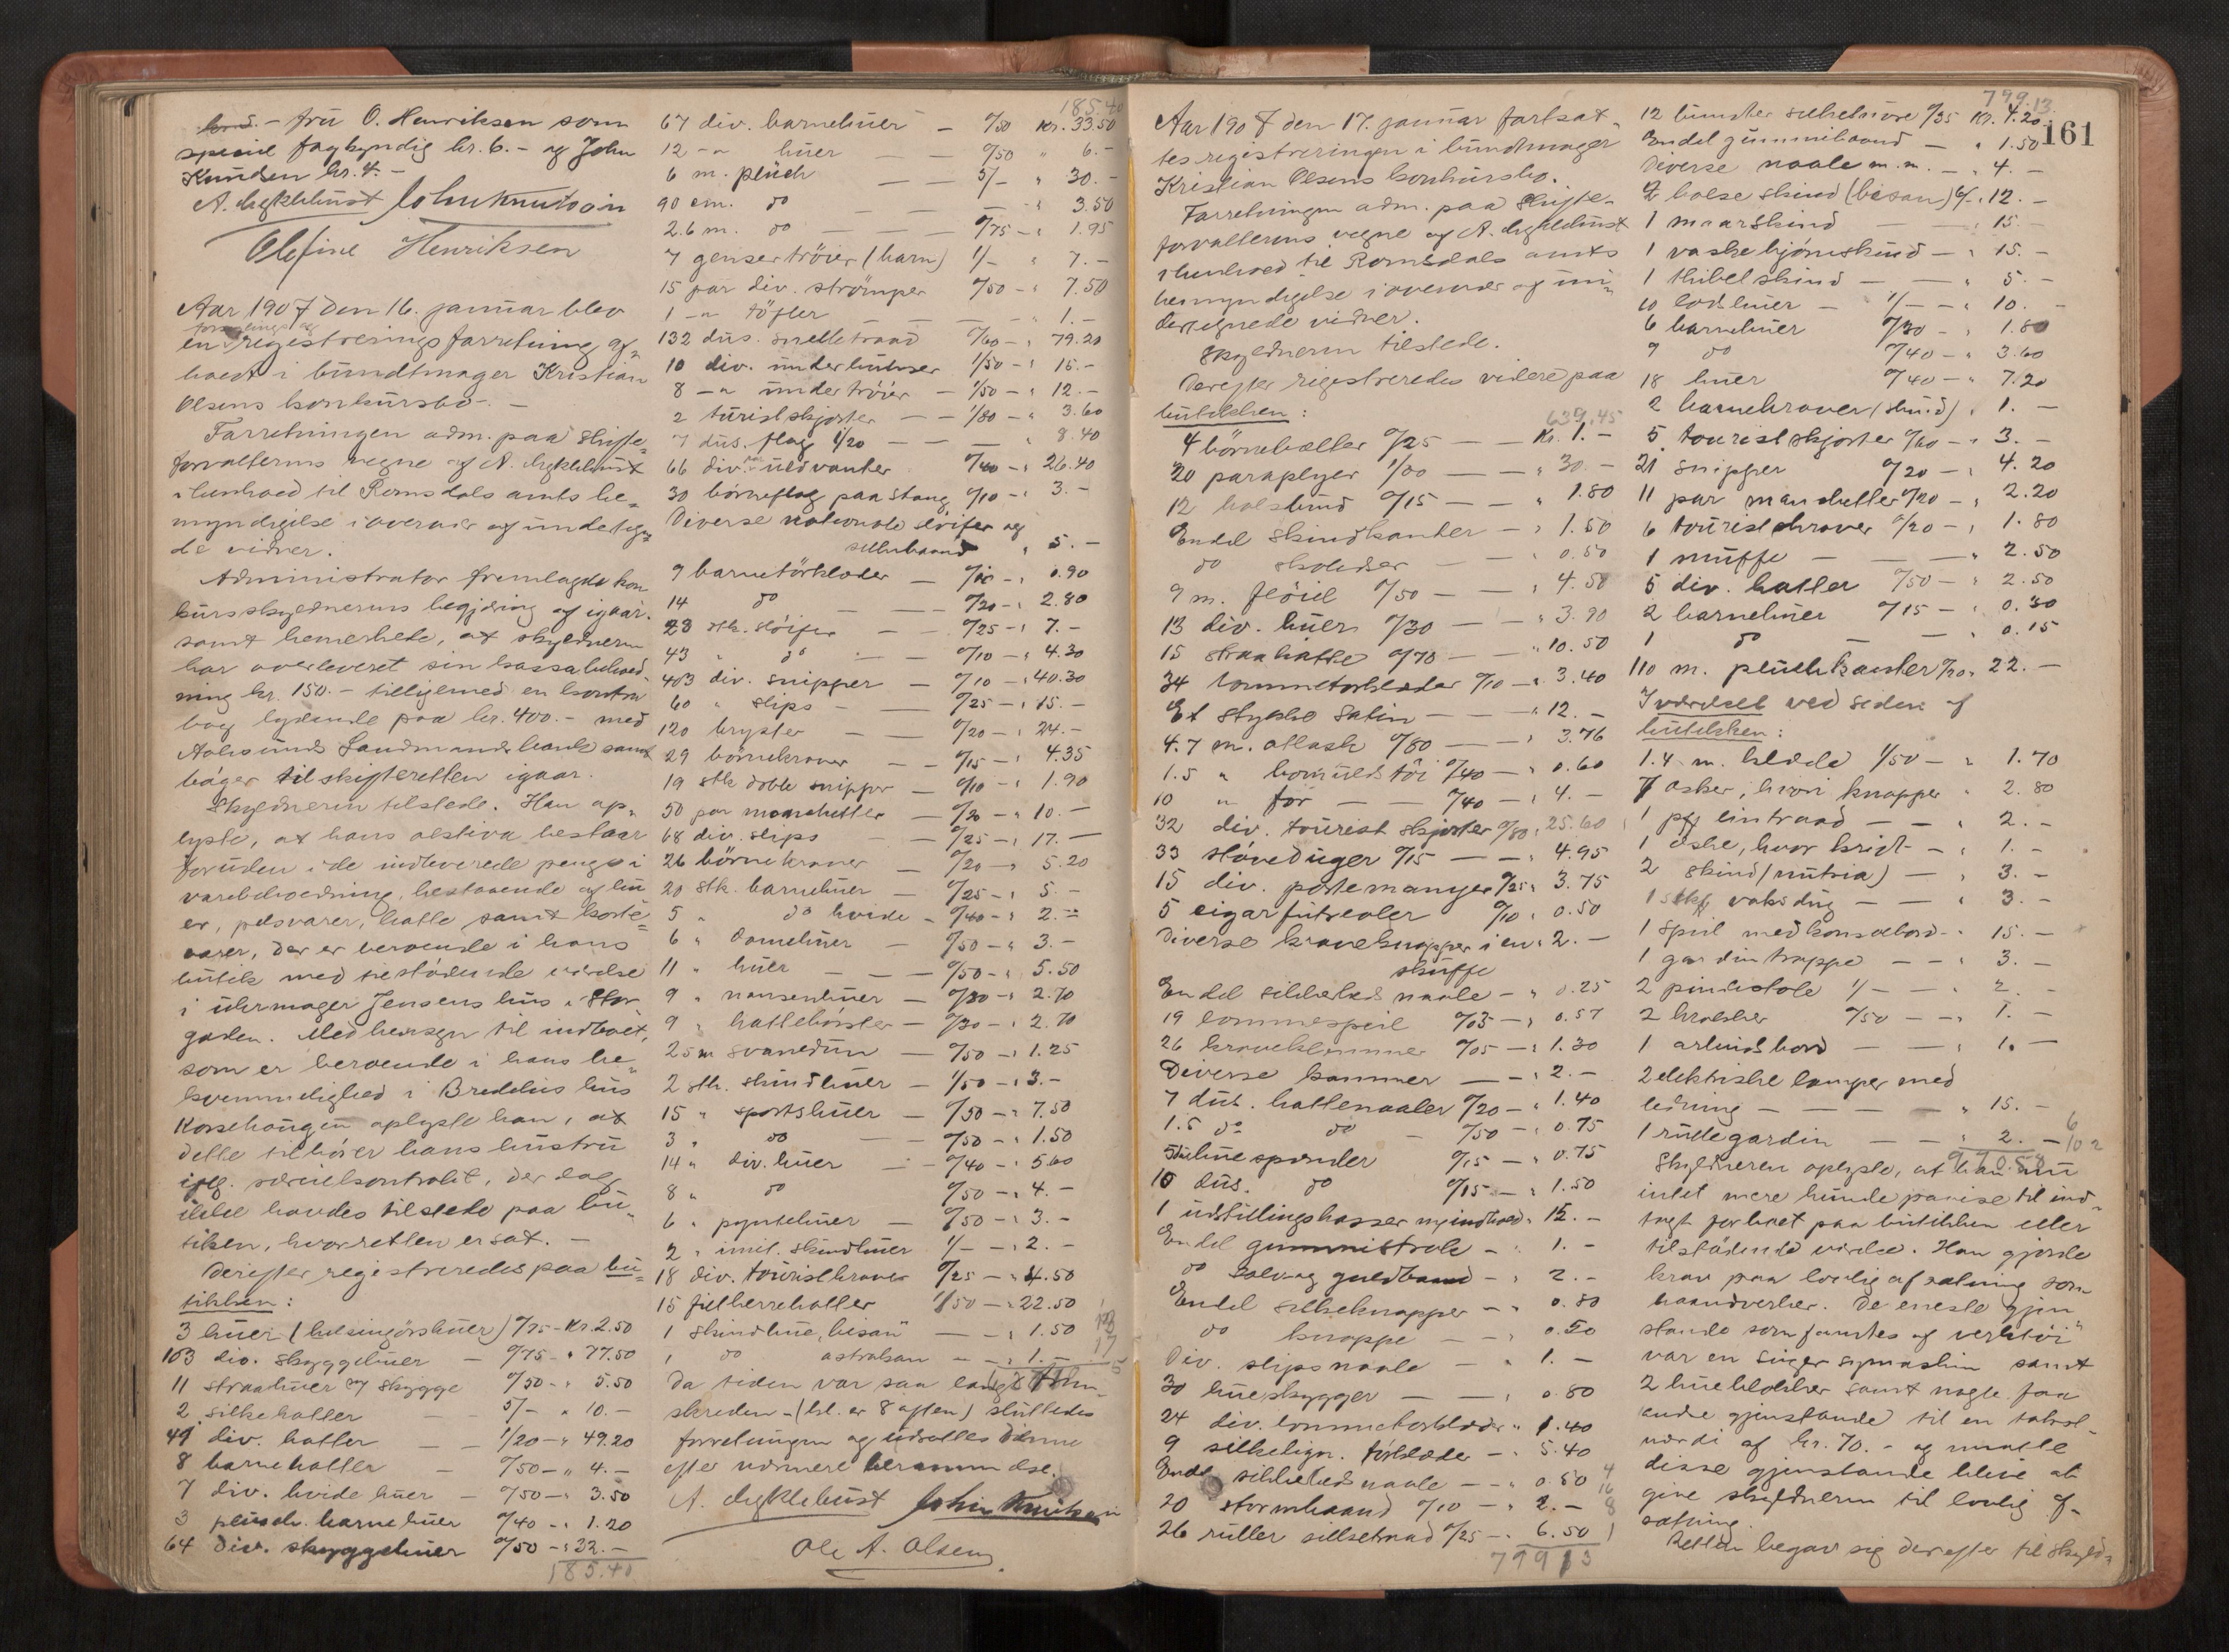 fru O. Henriksen som
speciel fagkyndig kr. 6.- og John
Knudsen kr. 4.-
A. Lykkebust John Knutsen
Olefine Henriksen
Aar 1907 den 16. januar blev
forseglings og
en registreringsforretning af-
holdt i bundtmager Kristian
Olsens konkursbo.-
Forretningen adm. paa skifte-
forvalterens vegne af A. Lykkebust
i henhold til Romsdals amts be-
myndigelse i overvær af undeteg-
de vidner.
Administrator fremlagde kon
kursskyldnerens begjæring af igaar.
samt bemerkede, at skyldneren
har overleveret sin kassabehold-
ning kr. 150.- tilligemed en kontra
bog lydende paa kr. 400.- med
Aalesunds Landmandsbank samt
bøger til skifteretten igaar.
Skyldneren tilstede. Han op-
lyste, at hans aktiva bestaar
foruden i de indleverede penge i
varebeholdning, bestaaende af hu
er, pelsvarer, hatte samt korte
varer, der er beroende i hans
butik med tilstødende værelse
i uhrmager Jensens hus i Stor
gaden. Med hensyn til indboet,
som er beroende i hans be-
kvemmelighed i Bredelis hus
Korsehaugen oplyste han, at
dette tilhører hans hustru
ifølg. særeiekontrakt, der dog
ikke havdes tilstede paa bu-
tiken, hvor retten er sat.-
Derefter registreredes paa bu-
tikken:
3 huer (helsingørshuer) 0/75 - Kr. 2.50
103 div. skyggehuer - 0/75 - " 77.50
11 straahuer m/ skygge 0/50 - " 5.50
2 silkehatter - 5/- " 10.-
41 div. hatter - - 1/20 - " 49.20
8 barnehatter - 0/50 - " 4.-
7 div. hvide huer - 0/50 - " 3.50
3 plüsch. barnehuer 0/40 - " 1.20
64 div. skyggehuer 0/50 - " 32.-
185.40
185.40
67 div. barnehuer - 0/50 Kr. 33.50
12 -"- huer - - 0/50 " 6.-
6 m. plüch - - 5/- " 30.-
90 cm. do - - - " 3.50
2.6 m. do - - 0/75 - " 1.95
7 gensertrøier (barn) 1/- " 7.-
15 par div. strømper 0/50 - " 7.50
1 -"- tøfler - - - " 1.-
132 dus. snelletraad 0/60 - " 79.20
10 div. underbukser 1/50 - " 15.-
8 -"- undertrøier - 1/50 - " 12.-
2 turistskjorter - - 1/80 - " 3.60
7 dus. flag 1/20 - - - " 8.40
66 div. par uldvanter 0/40 - " 26.40
30 børneflag paa stang 0/10 - " 3.-
Diverse nationale sløifer og
silkebaand " 5.-
9 barnetørklæder - 0/10 - " 0.90
14 do - - 0/20 - " 2.80
28 stk. sløifer - - 0/25 - " 7.-
43 " do - 0/10 - " 4.30
403 div. snipper - 0/10 - " 40.30
60 " slips - - 0/25 - " 15.-
120 bryster - - 0/20 - " 24.-
29 børnekraver - - 0/15 - " 4.35
19 stk doble snipper - 0/10 - " 1.90
50 par manchetter - 0/20 - " 10.-
68 div. slips - 0/25 - " 17.-
26 børnekraver - 0/20 - " 5.20
20 stk. barnehuer - 0/25 - " 5.-
5 " do hvide - 0/40 - " 2.-
6 " damehuer - 0/50 - " 3.-
11 " huer - - - 0/50 - " 5.50
9 " nansenhuer - 0/30 - " 2.70
9 " hattebørster - 0/30 - " 2.70
2.5 m svanedun - 0/50 - " 1.25
2 stk. skindhuer - 1/50 - " 3.-
15 " sportshuer - 0/50 - " 7.50
3 " do - - 0/50 - " 1.50
14 " div. huer - 0/40 - " 5.60
8 " do 0/50 - " 4.-
6 " pyntehuer - 0/50 - " 3.-
2 " imit. skindhuer 1/- - " 2.-
18 div. touristkraver 0/25 - " 4.50
15 filtherrehatter 1/50 - " 22.50
1 skindhue, bisam - - " 1.50
1 do astrakan - - " 1.-
Da tiden var saa langt frem-
skreden - (kl. er 8 aften) sluttedes
forretningen og udsattes denne
efter nærmere berammelse.
A. Lykkebust John Knutsen
Ole A. Olsen
161
Aar 1907 den 17. januar fortsat-
tes registreringen i bundtmager
Kristian Olsens konkursbo.
Forretningen adm. paa skifte-
forvalterens vegne af A. Lykkebust
i henhold til Romsdals amts
bemyndigelse i overvær af un-
dertegnede vidner.
Skyldneren tilstede.
Derefter registreredes videre paa
butikken:
639.45
4 børnebelter 0/25 - - Kr. 1.-
20 paraplyer 1/50 - - " 30.-
12 halsbind 0/15 - - " 1.80
Endel skindkanter - " 1.50
do - " 0.50
9 m. fløiel 0/50 - - " 4.50
13 div. huer 0/30 - - " 3.90
15 straahatte 0/70 - - " 10.50
34 lommetørklæder 0/10 - " 3.40
Et stykke satin - - " 12.-
4.7 m. atlask 0/80 - - " 3.76
1.5 " bomuldstøi 0/40 - " 0.60
10 " for - - 0/40 - " 4.-
32 div. tourist skjorter 0/80 " 25.60
33 støveduger 0/15 - - " 4.95
15 div. portemonnæer 0/25 " 3.75
5 cigarfutteraler 0/10 " 0.50
Diverse kraveknapper i en " 2.-
skuffe
Endel sikkerhedsnaale - " 0.25
19 lommespeil 0/03 - " 0.57
26 kraveklemmer 0/05 - " 1.30
Diverse kammer - - " 2.-
7 dus. hattenaaler 0/20 - " 1.40
1.5 do do - 0/50 - " 0.75
5 huespænder 0/15 - " 0.75
10 dus. do 0/15 - " 1.50
1 udstillingskasser m/ indhold " 15.-
Endel gummistrik - " 1.-
do sølv og guldbaand - " 2.-
Endel silkeknapper - " 0.80
do knappe - - " 0.50
Div. slipsnaale - " 1.-
30 hueskygger - - " 0.80
24 div. lommetørklæder " 1.40
9 silkelign. tørklæder - " 5.40
Endel sikkerhedsnaale - - " 0.50
20 stormbaand 0/10 - " 2.-
26 ruller silketraad 0/25 - " 6.50
799 13
799.13.
12 bundter silkesnøre 0/35 Kr. 4.20
Endel gummibaand - " 1.50
Diverse naale m. m. - " 4.-
2 halse skind (bisam) 6/- " 12.-
1 maarskind - - " 15.-
1 vaskebjørnskind - " 15.-
1 skind - - " 5.-
10 lodshuer - 1/- - " 10.-
6 barnehuer 0/30 - " 1.80
9 do 0/40 - " 3.60
18 huer 0/40 - " 7.20
2 barnekraver (skind) " 1.-
5 touristskjorter 0/60 - " 3.-
21 snipper 0/20 - " 4.20
11 par manchetter 0/20 - " 2.20
6 touristkraver 0/30 - " 1.80
1 muffe - - " 2.50
5 div. hatter 0/50 - " 2.50
2 barnehuer 0/15 - " 0.30
1 do - - " 0.15
110 m. plüchkanter 0/20 " 22.-
I værelset ved siden af
butikken:
1.4 m. klæde 1/50 - " 1.70
7 æsker, hvori knapper " 2.80
1 lintraad - - " 2.-
1 æske, hvor kridt - " 1.-
2 skind (nutria) - " 3.-
1 stk voksdug - - " 3.-
1 speil med konsolbord - " 15.-
1 gardintrappe - - " 3.-
2 pindestole 1/- - " 2.-
2 krakker 0/50 - - " 1.-
1 arbeidsbord - - " 1.-
2 elektriske lamper med
ledning - - - - " 15.-
1 rullegardin - - " 2.-
Skyldneren oplyste, at han nu
intet mere kunde paavise til ind-
tægt for boet paa butikken eller
tilstødende værelse. Han gjorde
krav paa lovlig afsætning som
haandverker. De eneste gjen
stande som fandtes af verktøi
var en Singer symaskin samt
2 hueblokker samt nogle faa
andre gjenstande til en total-
værdi af kr. 70.- og maatte
disse gjenstande blive at
give skyldneren til lovlig af-
sætning.
Retten begav sig derefter til skyld-